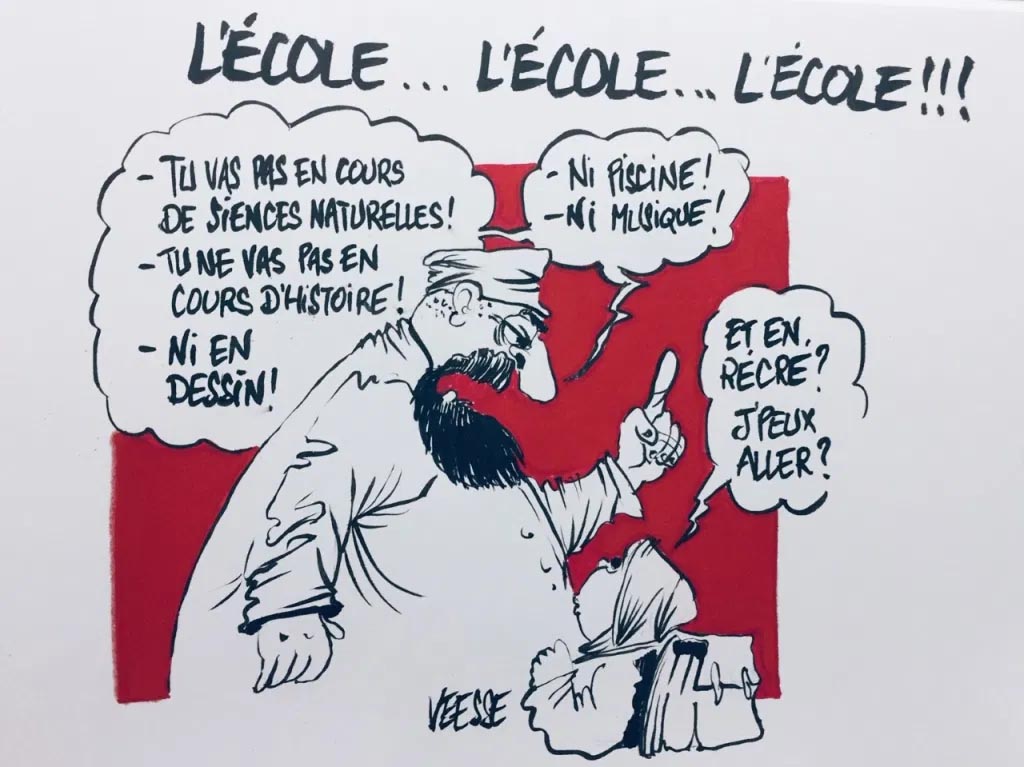 L'ÉCOLE... L'ÉCOLE... L'ÉCOLE!!!
- TU VAS PAS EN COURS
DE SIENCES NATURELLES!
- TU NE VAS PAS EN
COURS D'HISTOIRE!
- NI EN
DESSIN!
- NI PISCINE!
- NI MUSIQUE!
ET EN
RÉCRE?
J'PEUX
ALLER?
VEESSE